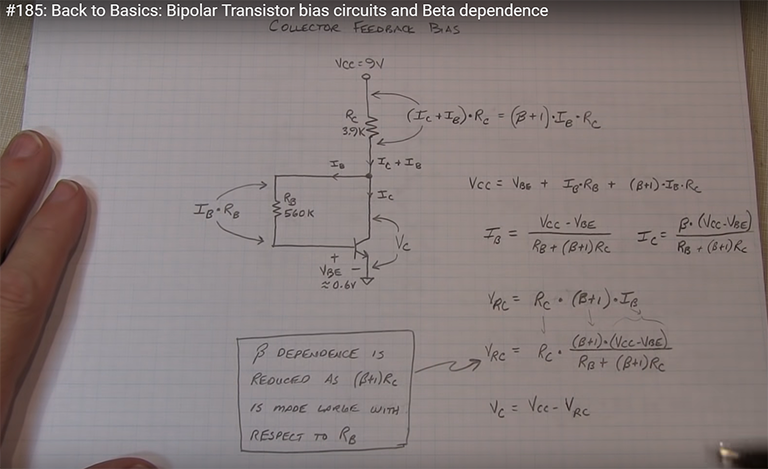 #185: Back to Basics: Bipolar Transistor bias circuits and Beta dependence
COLLECTOR FEEDBACK BIAS
VCC = 9V
RC
3.9K
(IC + IB)·RC = (β+1)·IB·RC
IB
IC + IB
IC
RB
560K
IB·RB
VC
+
VBE −
≈0.6V
VCC = VBE + IB·RB + (β+1)·IB·RC
IB = (VCC - VBE) / (RB + (β+1)RC)
IC = β·(VCC-VBE) / (RB + (β+1)RC)
VRC = RC · (β+1)·IB
VRC = RC · (β+1)·(VCC-VBE) / (RB + (β+1)RC)
VC = VCC - VRC
β DEPENDENCE IS
REDUCED AS (β+1)RC
IS MADE LARGE WITH
RESPECT TO RB